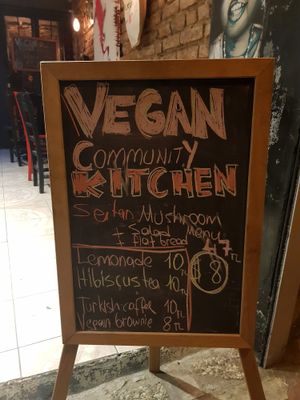 VEGAN
COMMUNITY
KITCHEN
Seitan Mushroom
+ Salad Menu
+ flatbread 47 TL
Lemonade 10 TL
Hibiscus tea 10 TL
8
Turkish coffee 10 TL
Vegan brownie 8 TL